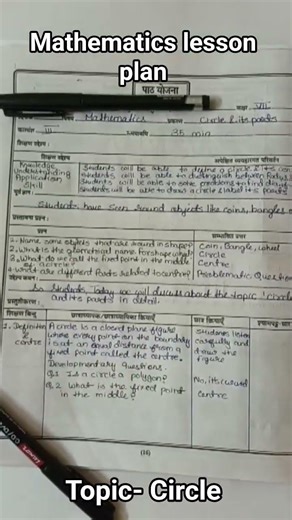 Mathematics lesson
plan
पाठ योजना
कक्षा VII
विषय Mathematics प्रकरण Circle & its parts
कालांश III समयावधि 35 min
शिक्षण उद्देश्य
शिक्षण उद्देश्य अपेक्षित व्यवहारगत परिवर्तन
Knowledge Students will be able to define a circle & its
Understanding Students will be able to distinguish between
Application Students will be able to solve problems to find
Skill Students will be able to draw a circle & label its parts
पूर्व ज्ञान
Students have seen round objects like coins, bangles
प्रस्तावना प्रश्न
प्रश्न सम्भावित उत्तर
1. Name some objects that are round in shape? Coin, Bangle, wheel
2. What is the geometrical name for shape Circle
3. What do we call the fixed point in the middle Centre
of a circle?
4. What are different parts related to centre? Problematic Question
उद्देश्य कथन
So Students, Today we will discuss about the topic 'circle
and its parts' in detail.
प्रस्तुतीकरण
शिक्षण बिन्दु छात्राध्यापक/छात्राध्यापिका क्रियाएँ छात्र क्रियाएँ
1. Definition A circle is a closed plane figure Students listen
of where every point on the boundary carefully and
centre is at an equal distance from a draw the
fixed point called the centre. figure
Developmentary questions.
Q.1 Is a circle a polygon? No, its curved
Q.2 What is the fixed point centre
in the middle?
Topic- Circle